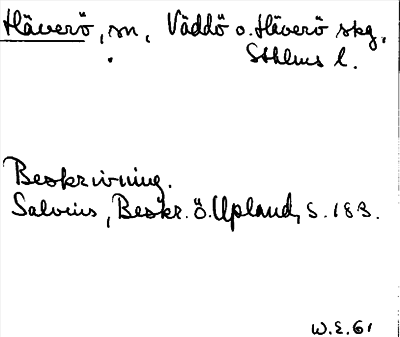 Häverö, sn, Väddö o. Häverö skg,
Sthlms l.
Beskrivning.
Salvius, Beskr. ö. Upland, s. 183.
W.E. 61